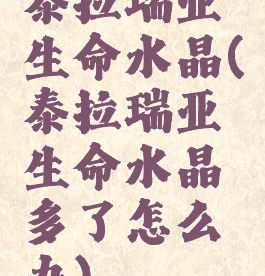 泰拉瑞亚
生命水晶(
泰拉瑞亚
生命水晶
多了怎么
办)